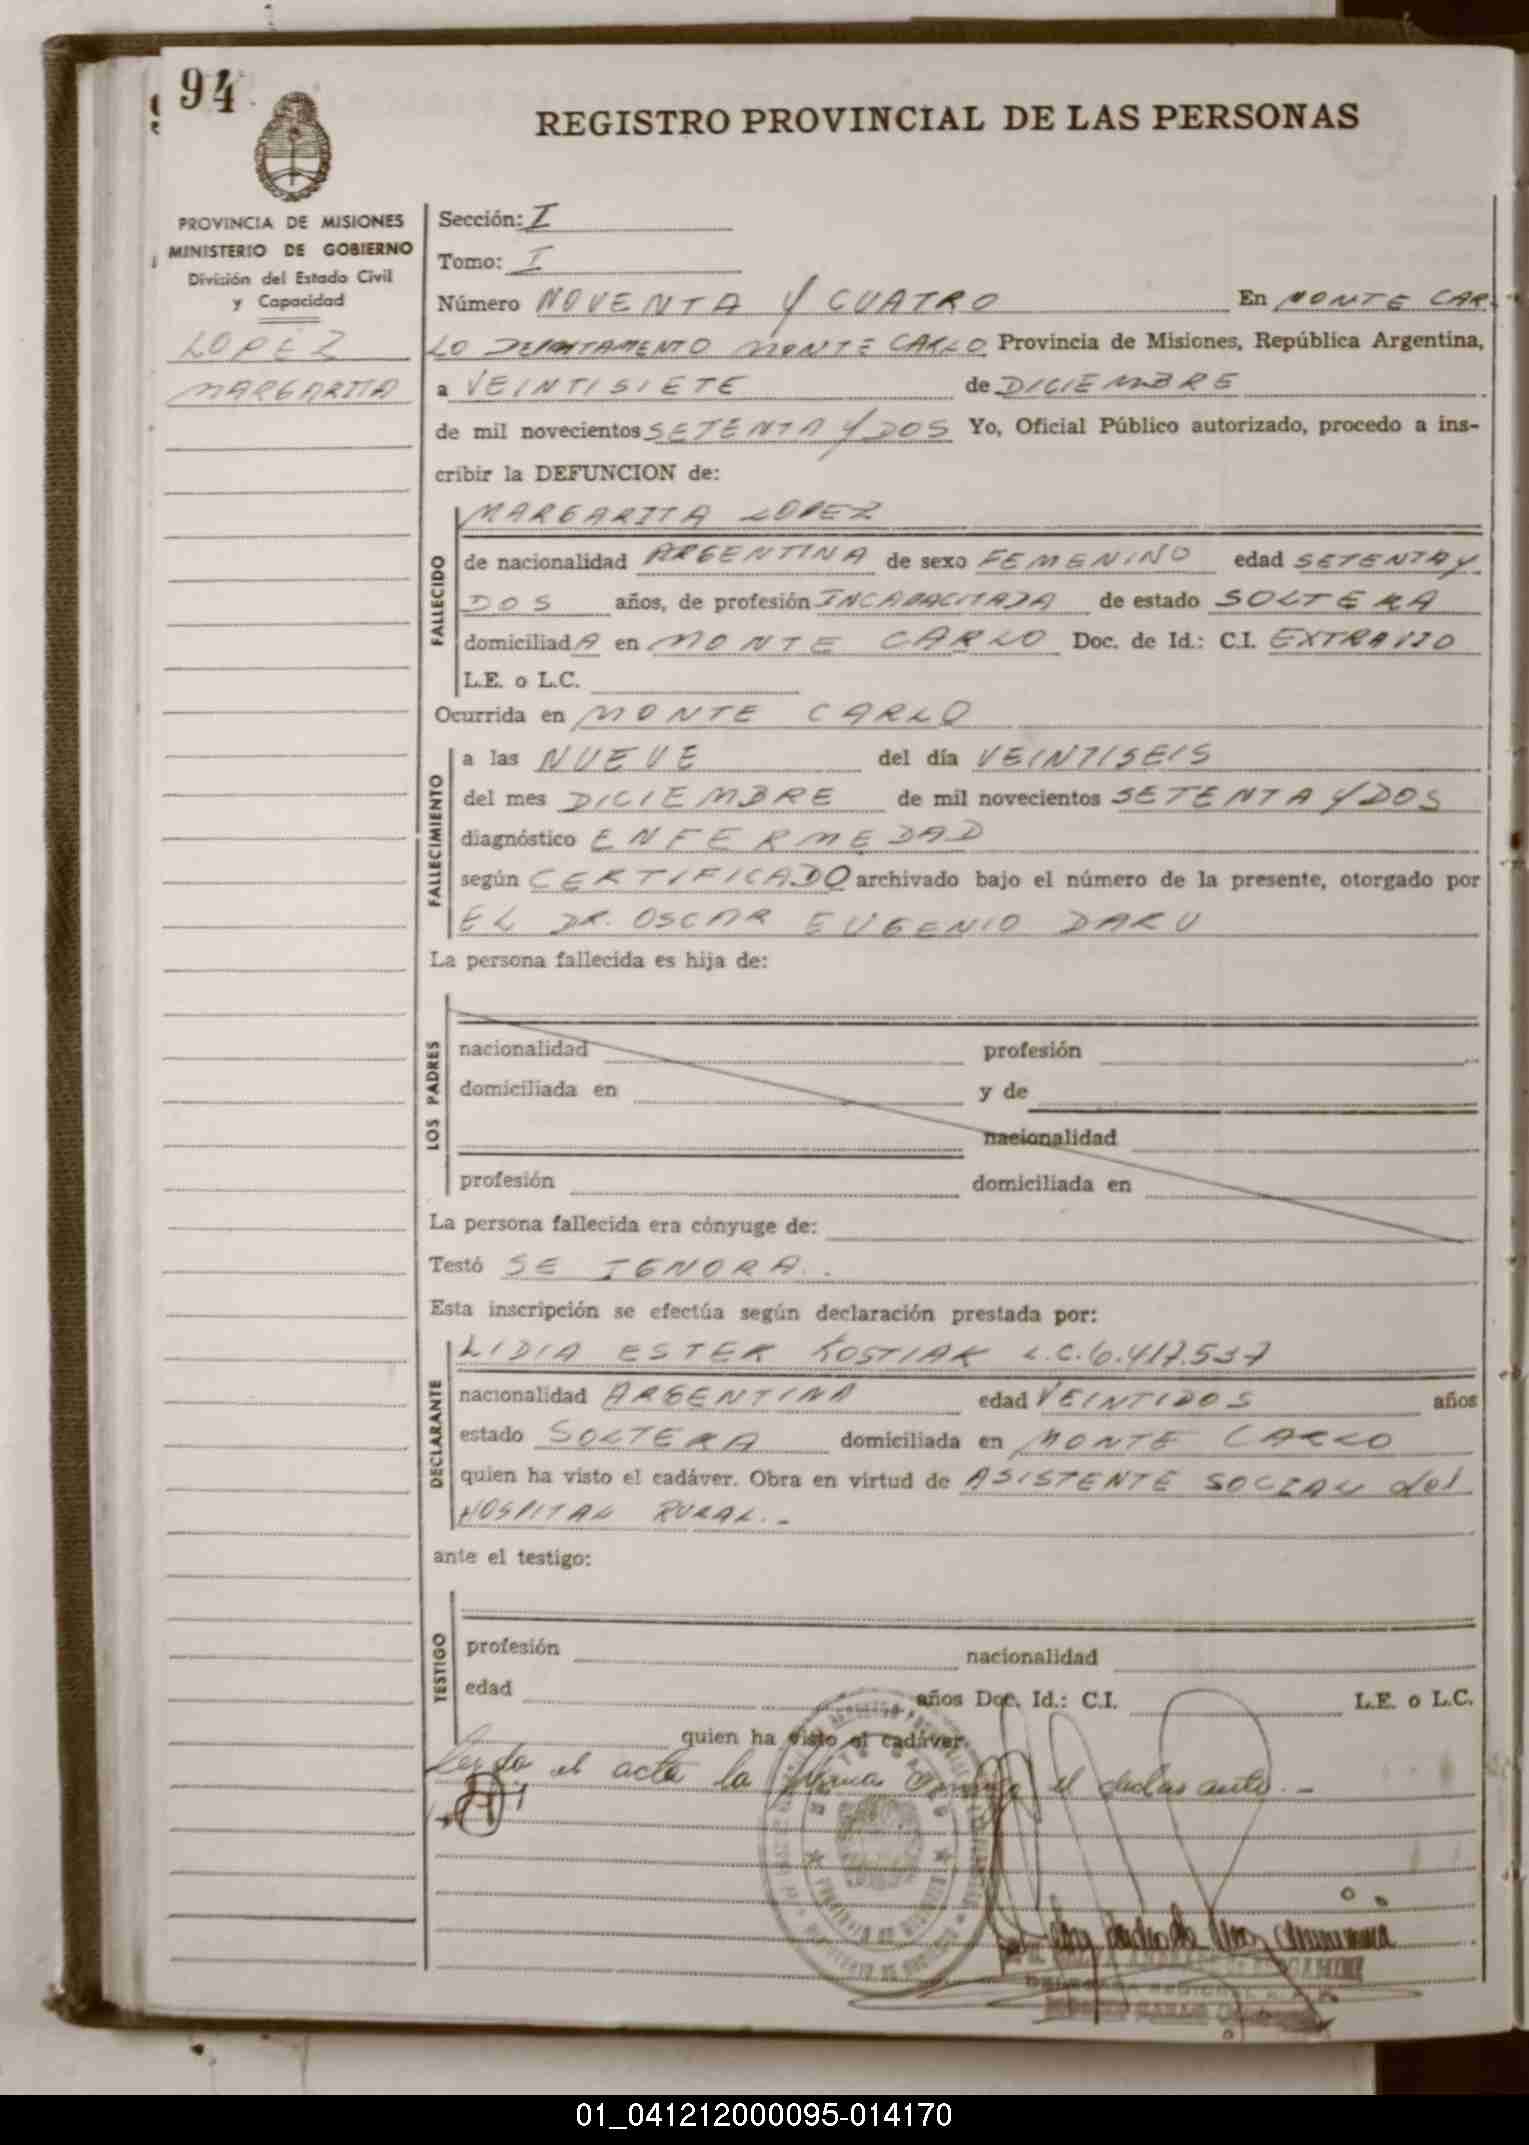 94
REGISTRO PROVINCIAL DE LAS PERSONAS
PROVINCIA DE MISIONES
MINISTERIO DE GOBIERNO
División del Estado Civil
y Capacidad
LOPEZ
MARGARITA
Sección: I
Tomo: I
Número NOVENTA Y CUATRO En MONTE CAR
LO DEPARTAMENTO MONTE CARLO Provincia de Misiones, República Argentina,
a VEINTISIETE de DICIEMBRE
de mil novecientos SETENTA Y DOS Yo, Oficial Público autorizado, procedo a ins-
cribir la DEFUNCION de:
FALLECIDO
MARGARITA LOPEZ
de nacionalidad ARGENTINA de sexo FEMENINO edad SETENTA Y
DOS años, de profesión INCAPACITADA de estado SOLTERA
domiciliadA en MONTE CARLO Doc. de Id.: C.I. EXTRAVIO
L.E. o L.C.
Ocurrida en MONTE CARLO
FALLECIMIENTO
a las NUEVE del día VEINTISEIS
del mes DICIEMBRE de mil novecientos SETENTA Y DOS
diagnóstico ENFERMEDAD
según CERTIFICADO archivado bajo el número de la presente, otorgado por
EL DR. OSCAR EUGENIO DARU
La persona fallecida es hija de:
LOS PADRES
nacionalidad profesión
domiciliada en y de
nacionalidad
profesión domiciliada en
La persona fallecida era cónyuge de:
Testó SE IGNORA.
Esta inscripción se efectúa según declaración prestada por:
DECLARANTE
LIDIA ESTER KOSTIAK L.C. 6.417.537
nacionalidad ARGENTINA edad VEINTIDOS años
estado SOLTERA domiciliada en MONTE CARLO
quien ha visto el cadáver. Obra en virtud de ASISTENTE SOCIAL del
HOSPITAL RURAL.-
ante el testigo:
TESTIGO
profesión nacionalidad
edad años Doc. Id.: C.I. L.E. o L.C.
quien ha visto el cadáver.
Leyda el acta la firma conmigo el declarante.-
01_041212000095-014170